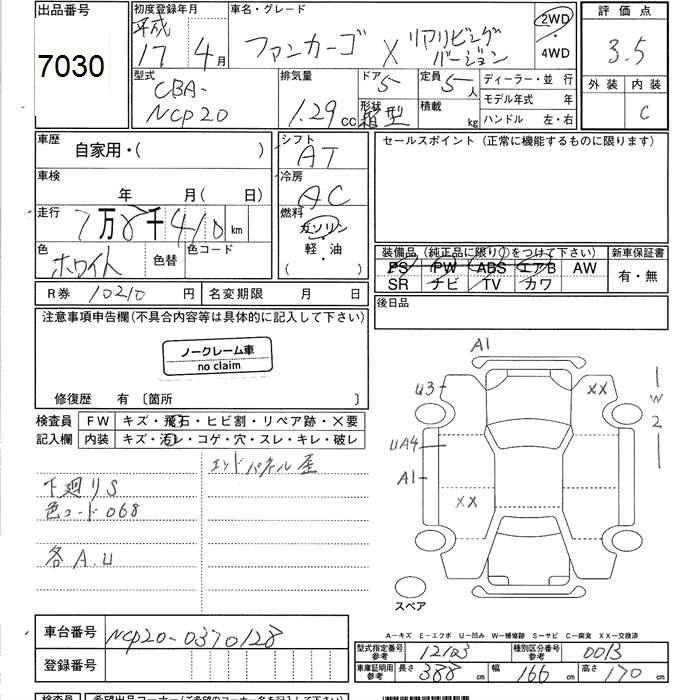 出品番号
7030
初度登録年月
平成
17年4月
車名・グレード
ファンカーゴ X リアリビングバージョン
2WD
4WD
評価点
3.5
外装 内装
C
型式
CBA-
NCP20
排気量
1.29 cc
ドア 5
形状 箱型
定員 5人
積載 kg
ディーラー・並 行
モデル年式 年
ハンドル 左・右
車歴
自家用・( )
車検
年 月( 日)
走行
7万8千410km
色 ホワイト 色替 色コード
R券 10210 円 名変期限 月 日
シフト
AT
冷房
AC
燃料
ガソリン
軽・油
( )
セールスポイント (正常に機能するものに限ります)
装備品 (純正品に限り○をつけて下さい) 新車保証書
PS PW ABS エアB AW
SR ナビ TV カワ
有・無
後日品
注意事項申告欄(不具合内容等は具体的に記入して下さい)
ノークレーム車
no claim
修復歴 有 〔箇所 〕
検査員
記入欄
FW キズ・飛石・ヒビ割・リペア跡・×要
内装 キズ・汚レ・コゲ・穴・スレ・キレ・破レ
エンドパネル歪
下廻りS
色コード068
各A.U
A1
U3
XX
W2
UA4
A1
XX
スペア
A-キズ E-エクボ U-凹み W-補修跡 S-サビ C-腐食 XX-交換済
車台番号 NCP20-0370128
登録番号
型式指定番号
参考 12103
種別区分番号
参考 0013
車庫証明用
参考
長さ 388 cm 幅 166 cm 高さ 170 cm